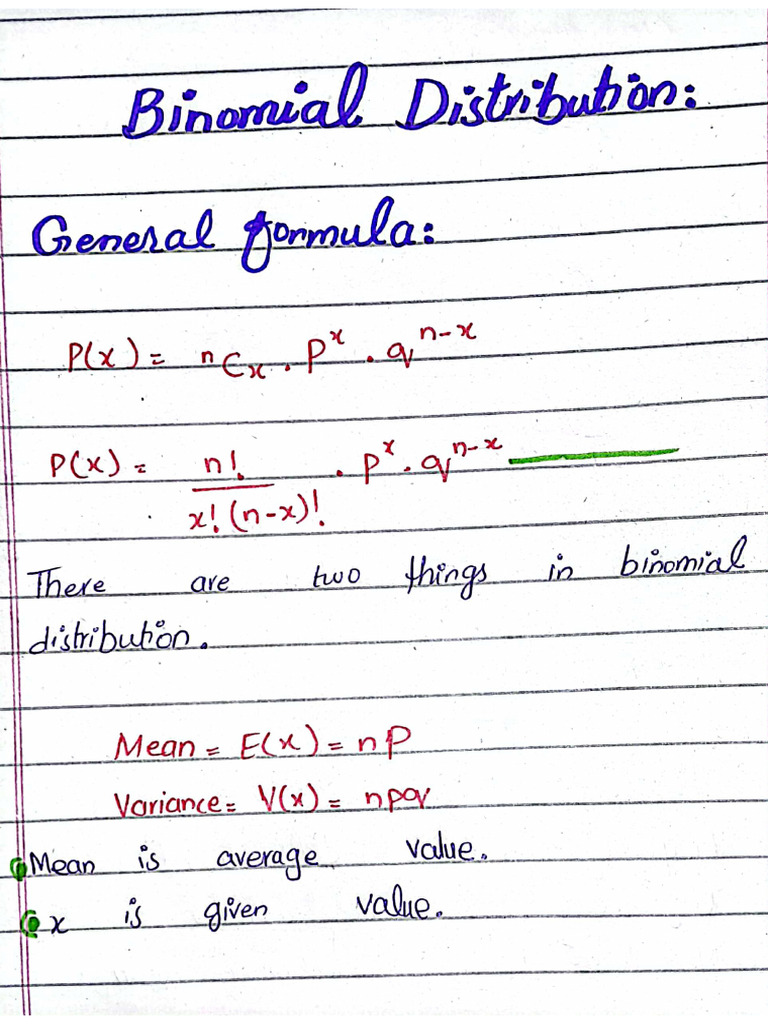 Binomial Distribution:
General formula:
P(x) = ⁿCₓ . pˣ . qⁿ⁻ˣ
P(x) = n! / x! (n-x)! . pˣ . qⁿ⁻ˣ
There are two things in binomial
distribution.
Mean = E(x) = np
Variance = V(x) = npq
Mean is average value.
x is given value.